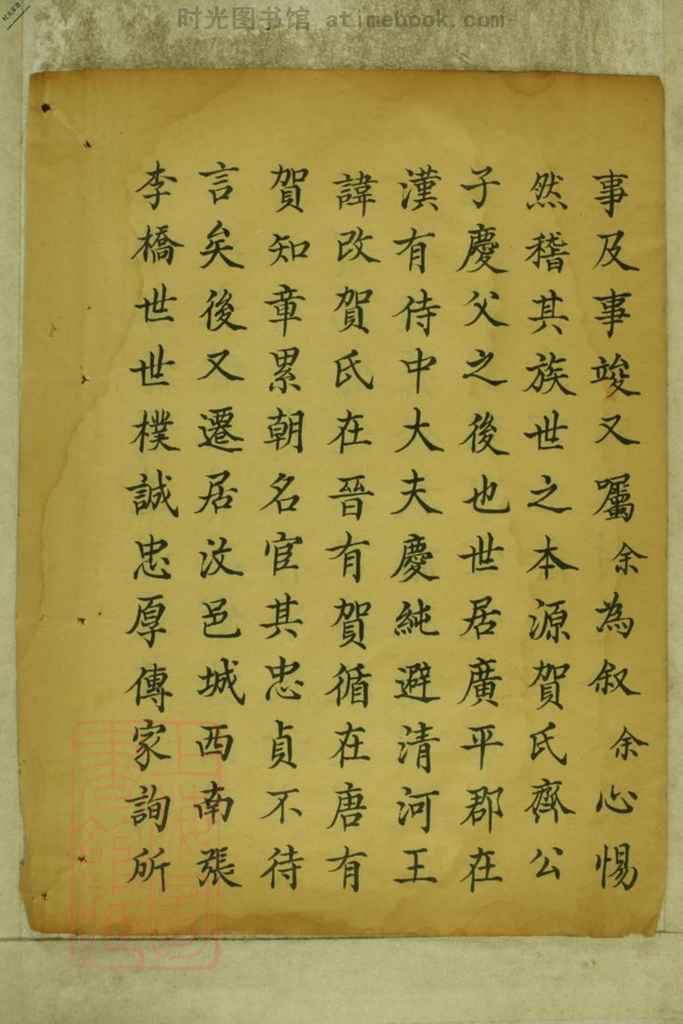 时光图书馆 atimebook.com
事及事竣又囑余為叙余心惕
然稽其族世之本源賀氏齊公
子慶父之後也世居廣平郡在
漢有侍中大夫慶純避清河王
諱改賀氏在晉有賀循在唐有
賀知章累朝名宦其忠貞不待
言矣後又遷居汶邑城西南張
李橋世世樸誠忠厚傳家詢所